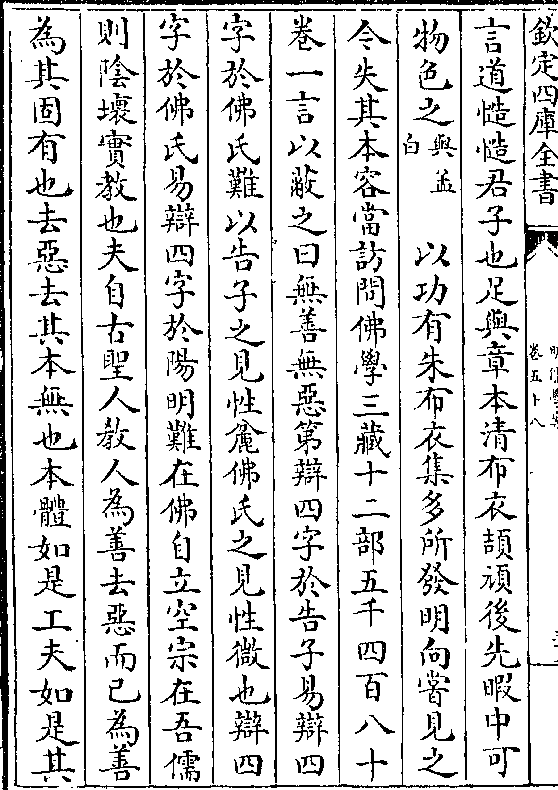 欽定四庫全書
卷五十八
言道慥慥君子也足與章本清布衣頡頏後先暇中可
物色之與孟白　以功有朱布衣集多所發明向嘗見之
今失其本容當訪問佛學三藏十二部五千四百八十
卷一言以蔽之曰無善無惡第辯四字於告子易辯四
字於佛氏難以告子之見性麄佛氏之見性微也辯四
字於佛氏易辯四字於陽明難在佛自立空宗在吾儒
則陰壞實教也夫自古聖人教人為善去惡而已為善
為其固有也去惡去其本無也本體如是工夫如是其